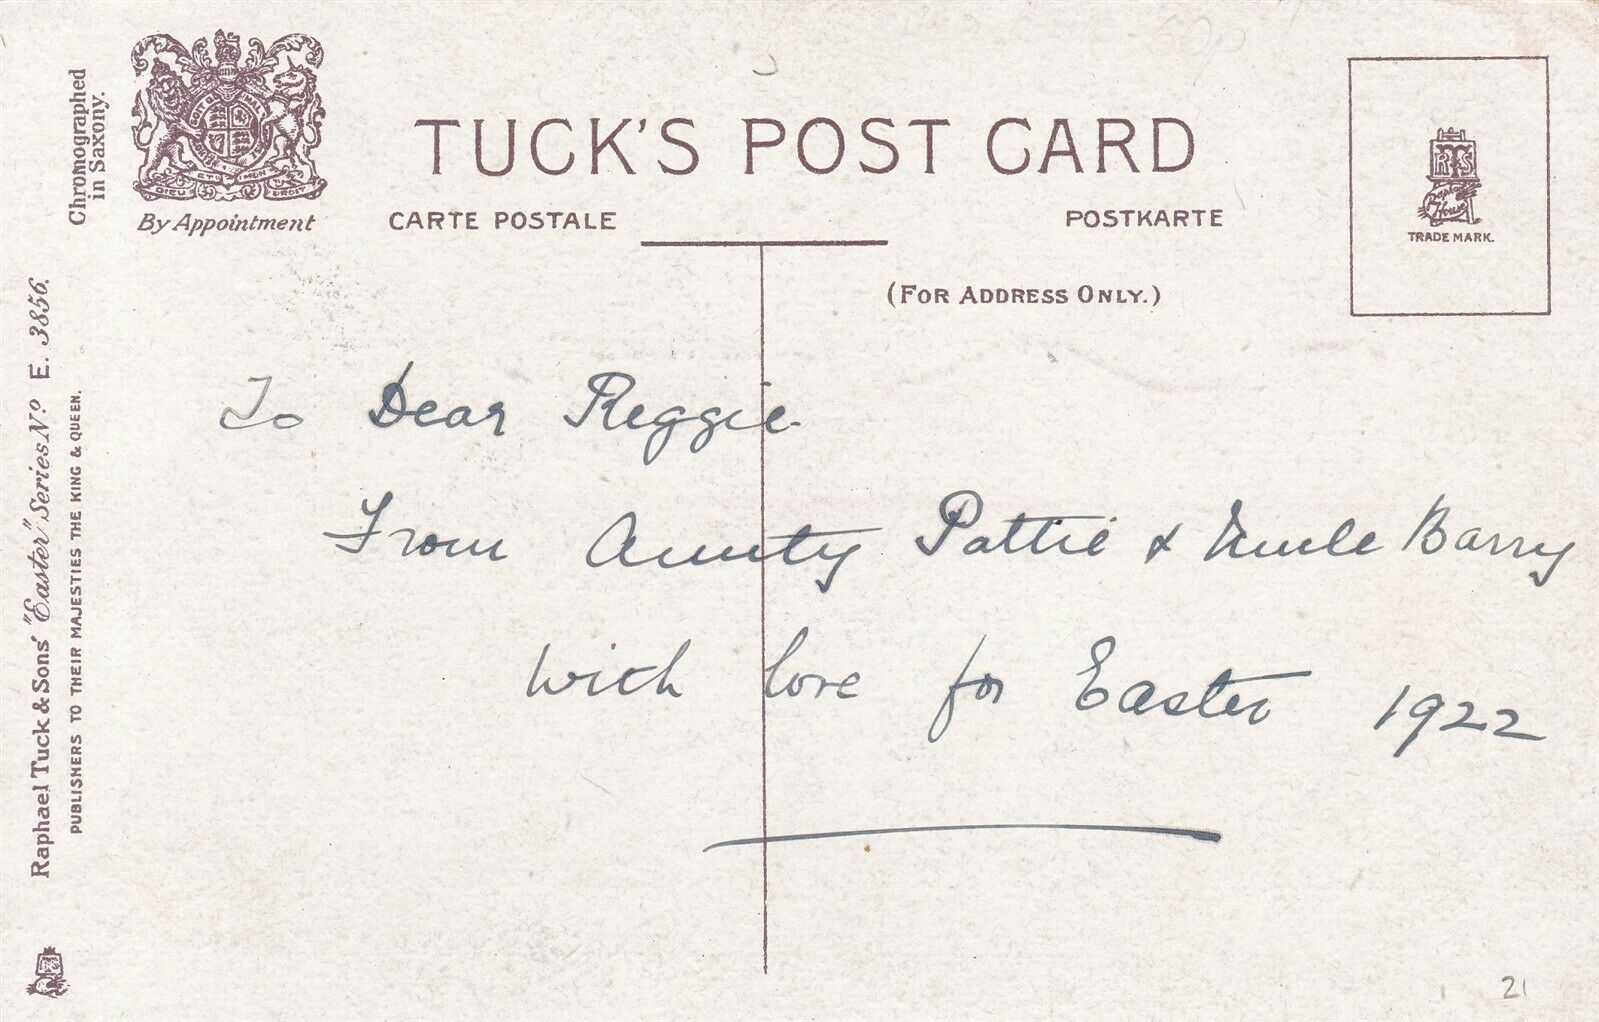 Chromographed
in Saxony.
DIEU ET MON DROIT
By Appointment
TUCK'S POST CARD
CARTE POSTALE
POSTKARTE
(FOR ADDRESS ONLY.)
RTS
Raphael
House
TRADE MARK.
Raphael Tuck & Sons' "Easter" Series Nº E. 3856.
PUBLISHERS TO THEIR MAJESTIES THE KING & QUEEN.
To Dear Reggie.
From Aunty Pattie & Uncle Barry
With love for Easter 1922
21